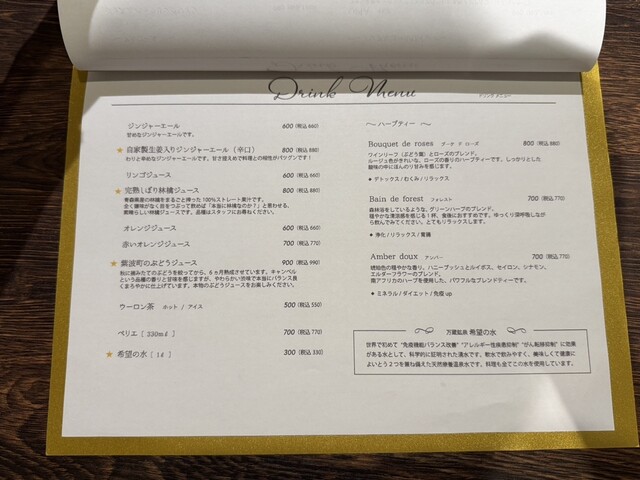 Drink Menu
ドリンク メニュー
ジンジャーエール 600 (税込 660)
甘めなジンジャーエールです。
★ 自家製生姜入りジンジャーエール(辛口) 800 (税込 880)
わりと辛めなジンジャーエールです。甘さ控えめで料理との相性がバツグンです!
リンゴジュース 600 (税込 660)
★ 完熟しぼり林檎ジュース 800 (税込 880)
青森県産の林檎をまるごと搾った 100%ストレート果汁です。
全く酸味がなく目をつぶって飲めば「本当に林檎なのか?」と思わせる、
素晴らしい林檎ジュースです。品種はスタッフにお尋ねください。
オレンジジュース 600 (税込 660)
赤いオレンジジュース 700 (税込 770)
★ 紫波町のぶどうジュース 900 (税込 990)
秋に摘みたてのぶどうを絞ってから、6ヵ月熟成させています。キャンベル
という品種の香りと甘味を感じますが、やわらかい渋味で本当にバランス良
くまろやかに仕上げています。本物のぶどうジュースをお楽しみください。
ウーロン茶 ホット / アイス 500 (税込 550)
ペリエ [ 330mℓ ] 700 (税込 770)
★ 希望の水 [ 1ℓ ] 300 (税込 330)
〜 ハーブティー 〜
Bouquet de roses ブーケ ド ローズ 800 (税込 880)
ワインリーフ(ぶどう葉)とローズのブレンド。
ルージュ色がきれいな、ローズの香りのハーブティーです。しっかりとした
酸味の中にほんのり甘みを感じます。
◆ デトックス / むくみ / リラックス
Bain de forest フォレスト 700 (税込 770)
森林浴をしているような、グリーンハーブのブレンド。
穏やかな清涼感を感じる1杯。食後におすすめです。ゆっくり深呼吸しなが
ら飲んでみてください。とてもリラックスします。
◆ 浄化 / リラックス / 胃腸
Amber doux アンバー 700 (税込 770)
琥珀色の穏やかな香り。ハニーブッシュとルイボス、セイロン、シナモン、
エルダーフラワーのブレンド。
南アフリカのハーブを使用した、パワフルなブレンドティーです。
◆ ミネラル / ダイエット / 免疫 up
万蔵鉱泉 希望の水
世界で初めて "免疫機能バランス改善" "アレルギー性疾患抑制" "がん転移抑制" に効果
がある水として、科学的に証明された湧水です。軟水で飲みやすく、美味しくて健康に
よいとう2つを兼ね備えた天然療養温泉水です。料理も全てこの水を使用しています。